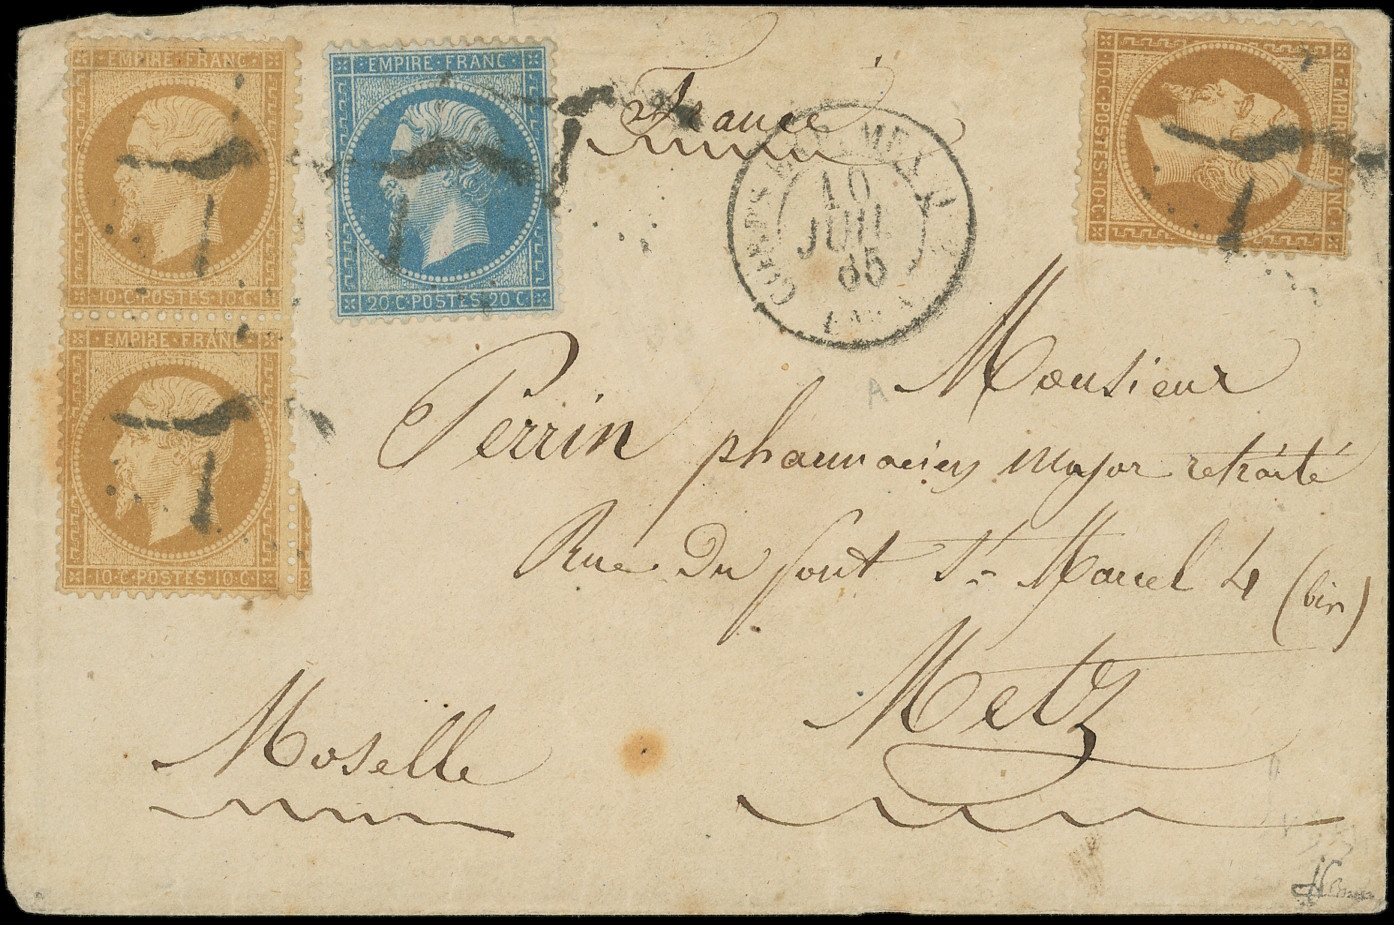 EMPIRE FRANC
10·C·POSTES·10·C
EMPIRE FRANC
10·C·POSTES·10·C
EMPIRE·FRANC
20·C·POSTES·20·C
EMPIRE FRANC
10·C·POSTES·10·C
France
10
JUIL
65
Monsieur
Perrin pharmacien major retraité
Rue du pont St Marcel 4 (bis)
Metz
Moselle